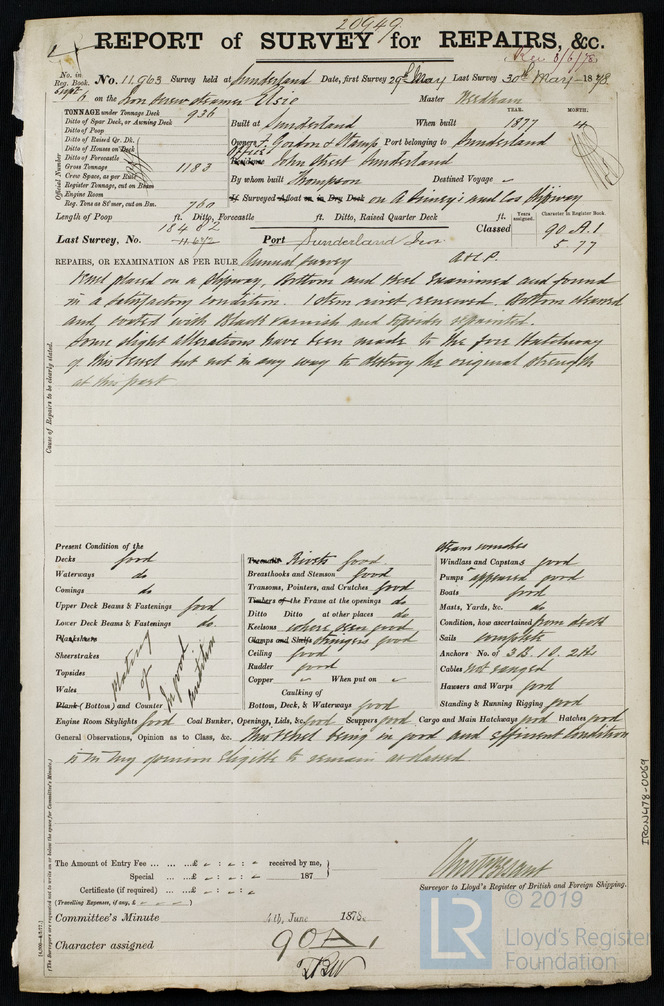 20949
REPORT of SURVEY for REPAIRS, &c.
Rec 3/6/78
No. in Reg. Book. No. 11,963 Survey held at Sunderland Date, first Survey 29th May Last Survey 30th May 1878
on the Iron Screw Steamer Elsie Master Needham
TONNAGE under Tonnage Deck 936
Ditto of Spar Deck, or Awning Deck
Ditto of Poop
Ditto of Raised Qr. Dk.
Ditto of Houses on Deck
Ditto of Forecastle
Gross Tonnage 1183
Crew Space, as per Rule
Register Tonnage, cut on Beam
Engine Room
Reg. Tons as St'mer, cut on Bm. 760
Official Number
YEAR. MONTH.
Built at Sunderland When built 1877 4
Owners F. Gordon & Stamp Port belonging to Sunderland
Office
Residence John Street Sunderland
By whom built Thompson Destined Voyage
If Surveyed Afloat or in Dry Dock on A Simey's and Cos Slipway
Length of Poop ft. Ditto, Forecastle ft. Ditto, Raised Quarter Deck ft.
Years assigned. Character in Register Book.
Classed 90 A.1.
5.77
18402
Last Survey, No. 11.672 Port Sunderland Iron
REPAIRS, OR EXAMINATION AS PER RULE Annual Survey A & P.
Vessel placed on a Slipway, Bottom and Keel Examined and found
in a satisfactory condition. 1 Stem rivet renewed. Bottom cleaned
and coated with Black Varnish and topsides repainted.
Some slight alterations have been made to the fore Hatchway
of this Vessel but not in any way to destroy the original strength
at this part
Cause of Repairs to be clearly stated.
Present Condition of the
Decks Good
Waterways do
Comings do
Upper Deck Beams & Fastenings Good
Lower Deck Beams & Fastenings do.
Plansheers
Sheerstrakes
Topsides
Wales
Plank (Bottom) and Counter
Plating of In good condition
Treenails Rivets Good
Breasthooks and Stemson Good
Transoms, Pointers, and Crutches Good
Timbers of the Frame at the openings do
Ditto Ditto at other places do
Keelsons where seen good
Clamps and Shelfs Stringers Good
Ceiling Good
Rudder good
Copper " When put on
Caulking of
Bottom, Deck, & Waterways Good
Steam winches
Windlass and Capstans good
Pumps appeared good
Boats Good
Masts, Yards, &c. do
Condition, how ascertained from deck
Sails complete
Anchors No. of 3 B. 1 S. 2 Ks
Cables Not ranged
Hawsers and Warps good
Standing & Running Rigging good
Engine Room Skylights Good Coal Bunker, Openings, Lids, &c. Good Scuppers good Cargo and Main Hatchways good Hatches good
General Observations, Opinion as to Class, &c. This Vessel being in good and efficient condition
is in my opinion Eligible to remain as classed.
(The Surveyors are requested not to write on or below the space for Committee's Minute.)
The Amount of Entry Fee ... £ : : received by me,
Special ... £ : : 187
Certificate (if required) ... £ : :
(Travelling Expenses, if any, £ )
Surveyor to Lloyd's Register of British and Foreign Shipping.
Committee's Minute 4th June 1878.
Character assigned 90A1
IRON478-0069
© 2019
LR
Lloyd's Register
Foundation